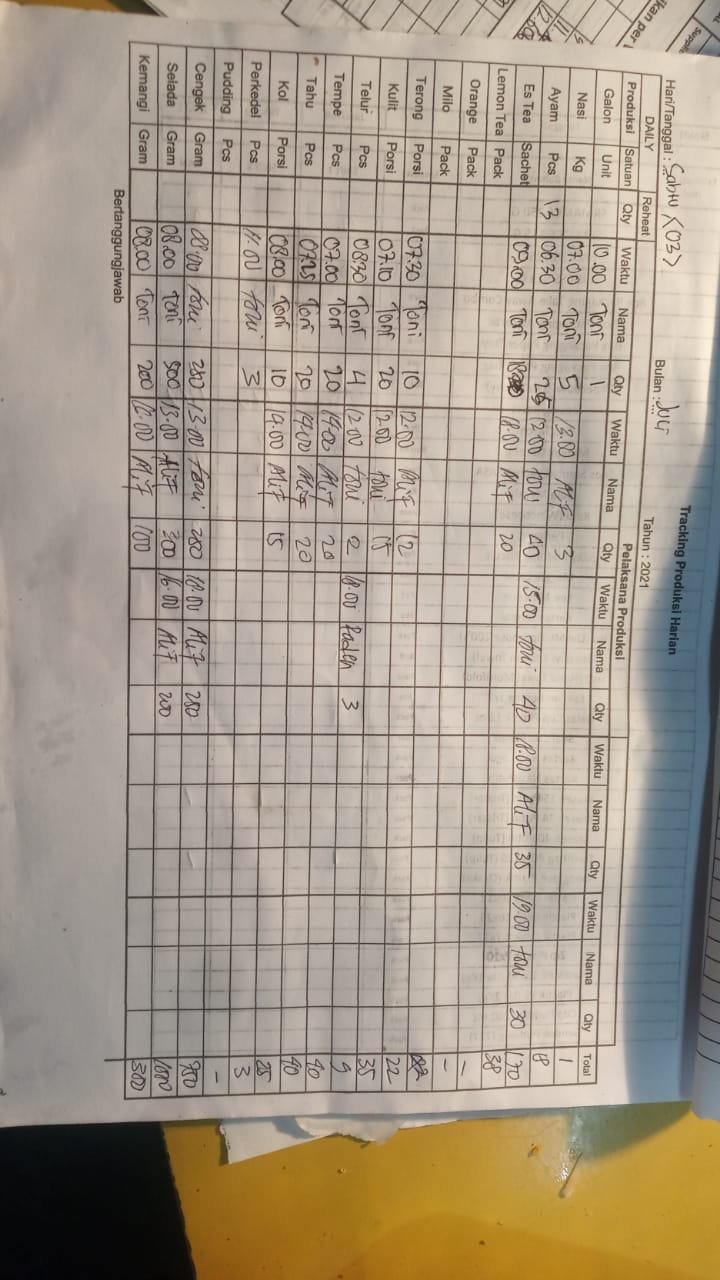 Tracking Produksi Harian
Hari/Tanggal : Sabtu (03) Bulan : Juli Tahun : 2021
DAILY Reheat Pelaksana Produksi
Produksi Satuan Qty Waktu Nama Qty Waktu Nama Qty Waktu Nama Qty Waktu Nama Qty Waktu Nama Qty Total
Galon Unit 10.00 Toni 1 1
Nasi Kg 07.00 Toni 5 13.00 Alif 3 8
Ayam Pcs 13 06.30 Toni 25 12.00 Toni 40 15.00 Toni 40 18.00 Alif 35 19.00 Toni 30 170
Es Tea Sachet 09.00 Toni 18.00 Alif 20 38
Lemon Tea Pack
Orange Pack -
Milo Pack -
Terong Porsi 07.30 Toni 10 12.00 Alif 12 22
Kulit Porsi 07.10 Toni 20 12.00 Toni 15 35
Telur Pcs 08.30 Toni 4 12.00 Toni 2 18.00 Raden 3 9
Tempe Pcs 07.00 Toni 20 19.00 Alif 20 40
Tahu Pcs 07.25 Toni 20 19.00 Alif 20 40
Kol Porsi 08.00 Toni 10 19.00 Alif 15 25
Perkedel Pcs 11.00 Toni 3 3
Pudding Pcs -
Cengek Gram 08.00 Toni 13.00 Toni 18.00 Alif
Selada Gram 08.00 Toni 500 13.00 Alif 300 16.00 Alif 200 1000
Kemangi Gram 08.00 Toni 200 12.00 Alif 100 300
Bertanggungjawab